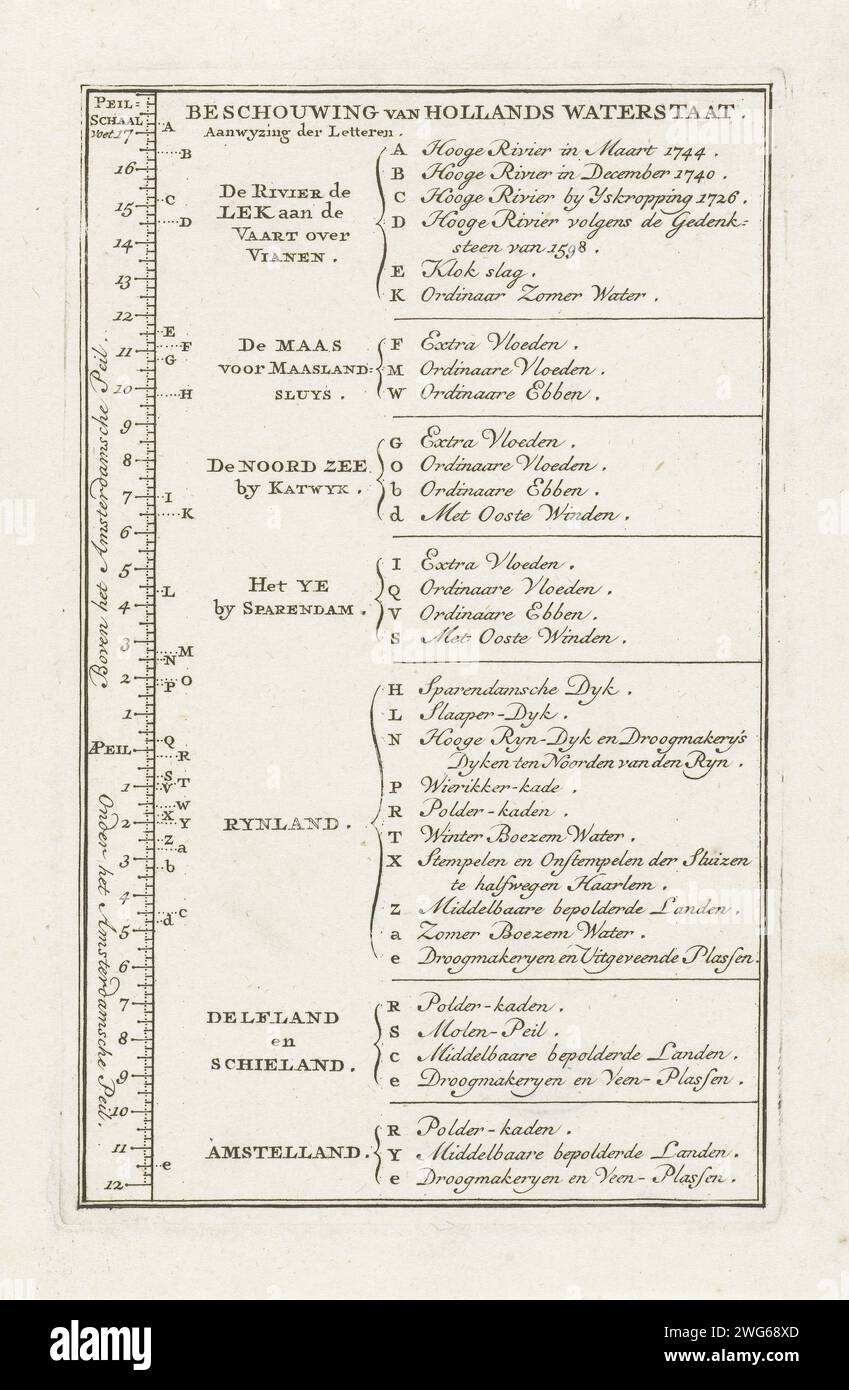 PEIL=
SCHAAL
voet 17
BESCHOUWING VAN HOLLANDS WATERSTAAT.
Aanwyzing der Letteren.
De RIVIER de
LEK aan de
VAART over
VIANEN.
A Hooge Rivier in Maart 1744.
B Hooge Rivier in December 1740.
C Hooge Rivier by Yskropping 1726.
D Hooge Rivier volgens de Gedenk=
steen van 1598.
E Klok slag.
K Ordinaar Zomer Water.
De MAAS
voor MAASLAND=
SLUYS.
F Extra Vloeden.
M Ordinaare Vloeden.
W Ordinaare Ebben.
De NOORD ZEE
by KATWYK.
G Extra Vloeden.
O Ordinaare Vloeden.
b Ordinaare Ebben.
d Met Ooste Winden.
Het YE
by SPARENDAM.
I Extra Vloeden.
Q Ordinaare Vloeden.
V Ordinaare Ebben.
S Met Ooste Winden.
RYNLAND.
H Sparendamsche Dyk.
L Slaaper-Dyk.
N Hooge Ryn-Dyk en Droogmakery's
Dyken ten Noorden van den Ryn.
P Wierikker-kade.
R Polder-kaden.
T Winter Boezem Water.
X Stempelen en Onstempelen der Sluizen
te halfwegen Haarlem.
Z Middelbaare bepolderde Landen.
a Zomer Boezem Water.
e Droogmakeryen en Uitgeveende Plassen.
DELFLAND
en
SCHIELAND.
R Polder-kaden.
S Molen-Peil.
c Middelbaare bepolderde Landen.
e Droogmakeryen en Veen-Plassen.
AMSTELLAND.
R Polder-kaden.
Y Middelbaare bepolderde Landen.
e Droogmakeryen en Veen-Plassen.
A
B
16
C
15
D
14
13
12
E
11 F
G
10 H
9
8
7 I
K
6
5
L
4
3
M
N
2 O
P
1
Q
APEIL
R
S
1 T
V
W
X
2 Y
Z
a
3
b
4
c
d
5
6
7
8
9
10
11
e
12
Boven het Amsterdamsche Peil.
Onder het Amsterdamsche Peil.
alamy
Image ID: 2WG68XD
www.alamy.com